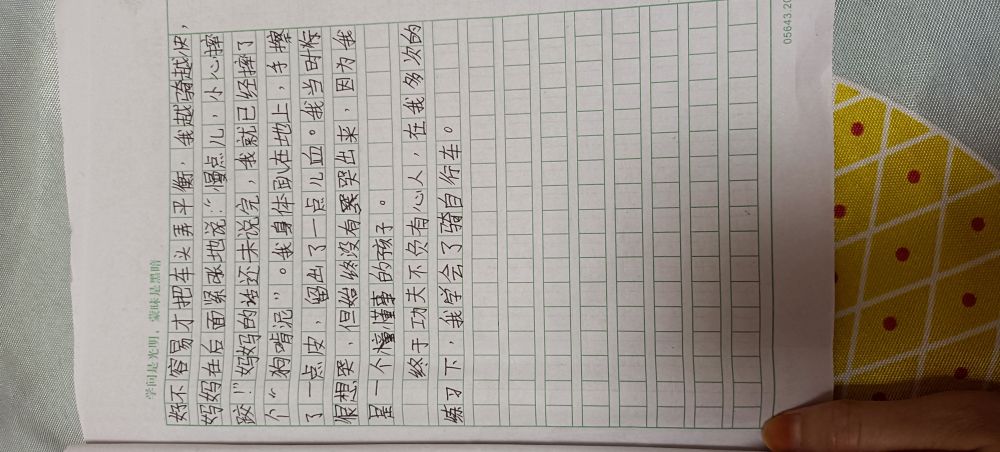 学问是光明，蒙昧是黑暗
好不容易才把车头弄平衡，我越骑越快，
妈妈在后面紧张地说：“慢点儿，小心摔
跤！”妈妈的话还未说完，我就已经摔了
个“狗啃泥”。我身体趴在地上，手擦
了一点皮，留出了一点儿血。我当时
很想哭，但始终没有哭出来，因为我
是一个懂事的孩子。
终于功夫不负有心人，在我多次的
练习下，我学会了骑自行车。
05643.20